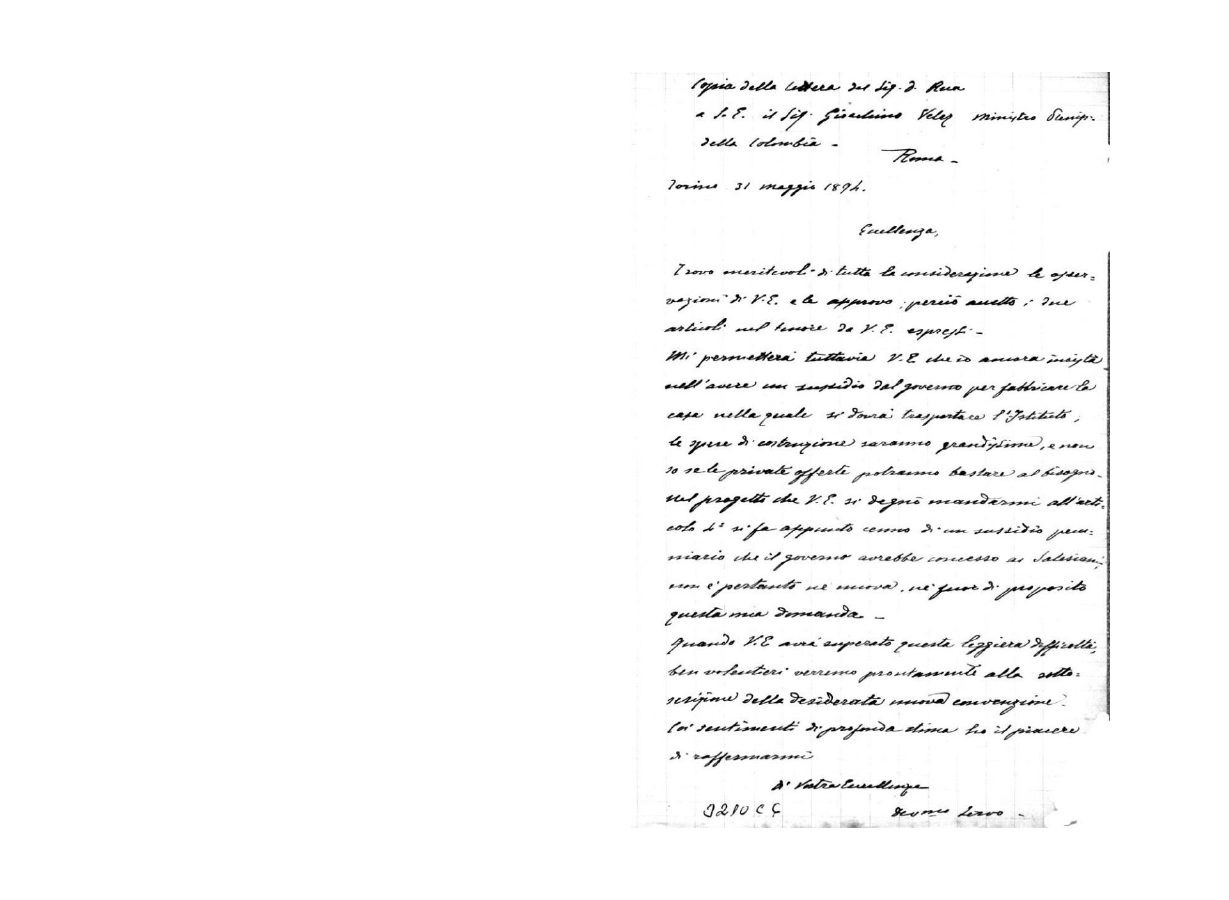 Copia della lettera del Sig. D. Rua
a S. E. il Sig. Gioachino Velez Ministro Plenip.
della Colombia -
Roma -
Torino 31 maggio 1894.
Eccellenza,
Trovo meritevoli di tutta la considerazione le osser=
vazioni di V. E. e le approvo, perciò accetto i due
articoli nel tenore da V. E. espressi -
Mi permetterà tuttavia V. E che io ancora insista
nell'avere un sussidio dal governo per fabbricare la
casa nella quale si dovrà trasportare l'Istituto;
le spese di costruzione saranno grandissime, e non
so se le private offerte potranno bastare al bisogno.
Nel progetto che V. E. si degnò mandarmi all'arti-
colo 4° si fa appunto cenno di un sussidio pecu=
niario che il governo avrebbe concesso ai Salesiani;
non è pertanto nè nuova, nè fuor di proposito
questa mia domanda -
Quando V. E avrà superato questa leggiera difficoltà,
ben volentieri verremo prontamente alla sotto=
scrizione della desiderata nuova convenzione.
Coi sentimenti di profonda stima ho il piacere
di raffermarmi
di Vostra Eccellenza
3210 C 4
Dev.mo Servo -